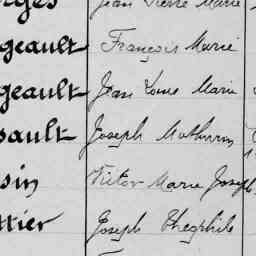 Jean Pierre Marie
geault François Marie
geault Jean Louis Marie
sault Joseph Mathurin
sin Victor Marie Joseph
ttier Joseph Théophile